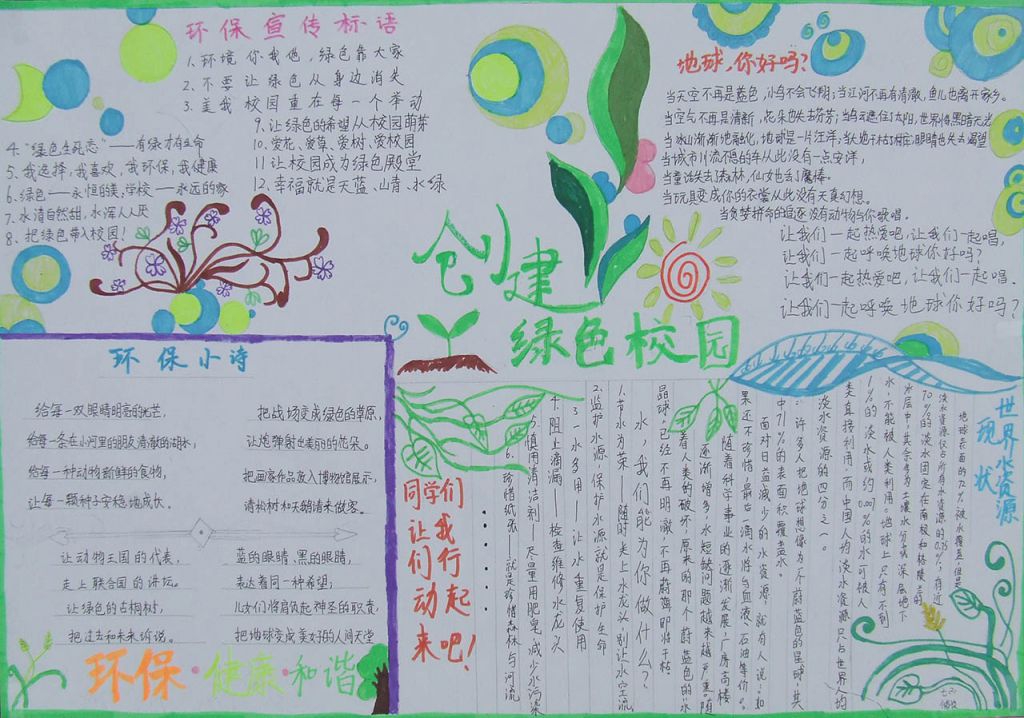 环保宣传标语
1.环境你我他，绿色靠大家
2.不要让绿色从身边消失
3.美我校园重在每一个举动
4."绿色生死恋"——有绿才有生命
5.我选择，我喜欢，我环保，我健康
6.绿色——永恒的美，学校——永远的家
7.水清自然甜，水浑人人厌
8.把绿色带入校园！
9.让绿色的希望从校园萌芽
10.爱花、爱草、爱树、爱校园
11.让校园成为绿色殿堂
12.幸福就是天蓝、山青、水绿
地球，你好吗？
当天空不再是蓝色，小鸟不会飞翔；当江河不再有清澈，鱼儿也离开家乡。
当空气不再是清新，花朵也失去芬芳；当乌云遮住了太阳，世界将黑暗无光
当冰山渐渐地融化，地球是一片汪洋；
当城市川流不息的车从此没有一点安详，
当童话失去了森林，仙女也丢了魔棒。
当玩具变成你的衣裳从此没有天真幻想。
让我们一起热爱吧，让我们一起唱，
让我们一起呼唤地球你好吗？
让我们一起热爱吧，让我们一起唱.
让我们一起呼唤地球你好吗？
创建
绿色校园
环保小诗
给每一双眼睛明亮的光芒，
给每一条在小河里的朋友清澈的湖水，
给每一种动物新鲜的食物，
让每一颗种子安稳地成长。
把战场变成绿色的草原，
让炮弹射出美丽的花朵。
把画家作品放入博物馆展示，
请松树和天鹅请来做客。
让动物王国的代表，
走上联合国的讲坛。
让绿色的古桐树，
把过去和未来诉说。
蓝的眼睛、黑的眼睛，
表达着同一种希望，
儿女们将肩负起神圣的职责，
把地球变成美好的人间天堂
环保·健康·和谐
同学们
让我
们行
动起
来吧！
世界水资源
现状
地球表面的72%被水覆盖，但是
淡水资源仅占所有水资源的0.75%，有近
70%的淡水固定在南极和格陵兰的
冰层中，其余多为土壤水分或深层地下
水，不能被人类利用。地球上只有不到
1%的淡水或约0.007%的水可被人
类直接利用，而中国人均淡水资源只占世界人均
淡水资源的四分之一。
许多人把地球想像为一个蔚蓝色的星球，其
中71%的表面积覆盖水。
面对日益减少的水资源，就有人说：如
果还不珍惜，最后一滴水将与血液、石油等价。
随着科学事业的逐渐发展，厂房高楼
逐渐增多，水短缺问题越来越严重。随
着人类的破坏，原来的那个蔚蓝色的水
晶球，已经不再明澈，不再蔚蓝，即将干枯
水，我们能为你做什么？
1.节水为荣——随时关上水龙头，别让水空流
2.监护水源，保护水源就是保护生命
3.一水多用——让水重复使用
4.阻止滴漏——检查维修水龙头
5.慎用清洁剂——尽量用肥皂，减少水污染
6.珍惜纸张——就是珍惜森林与河流